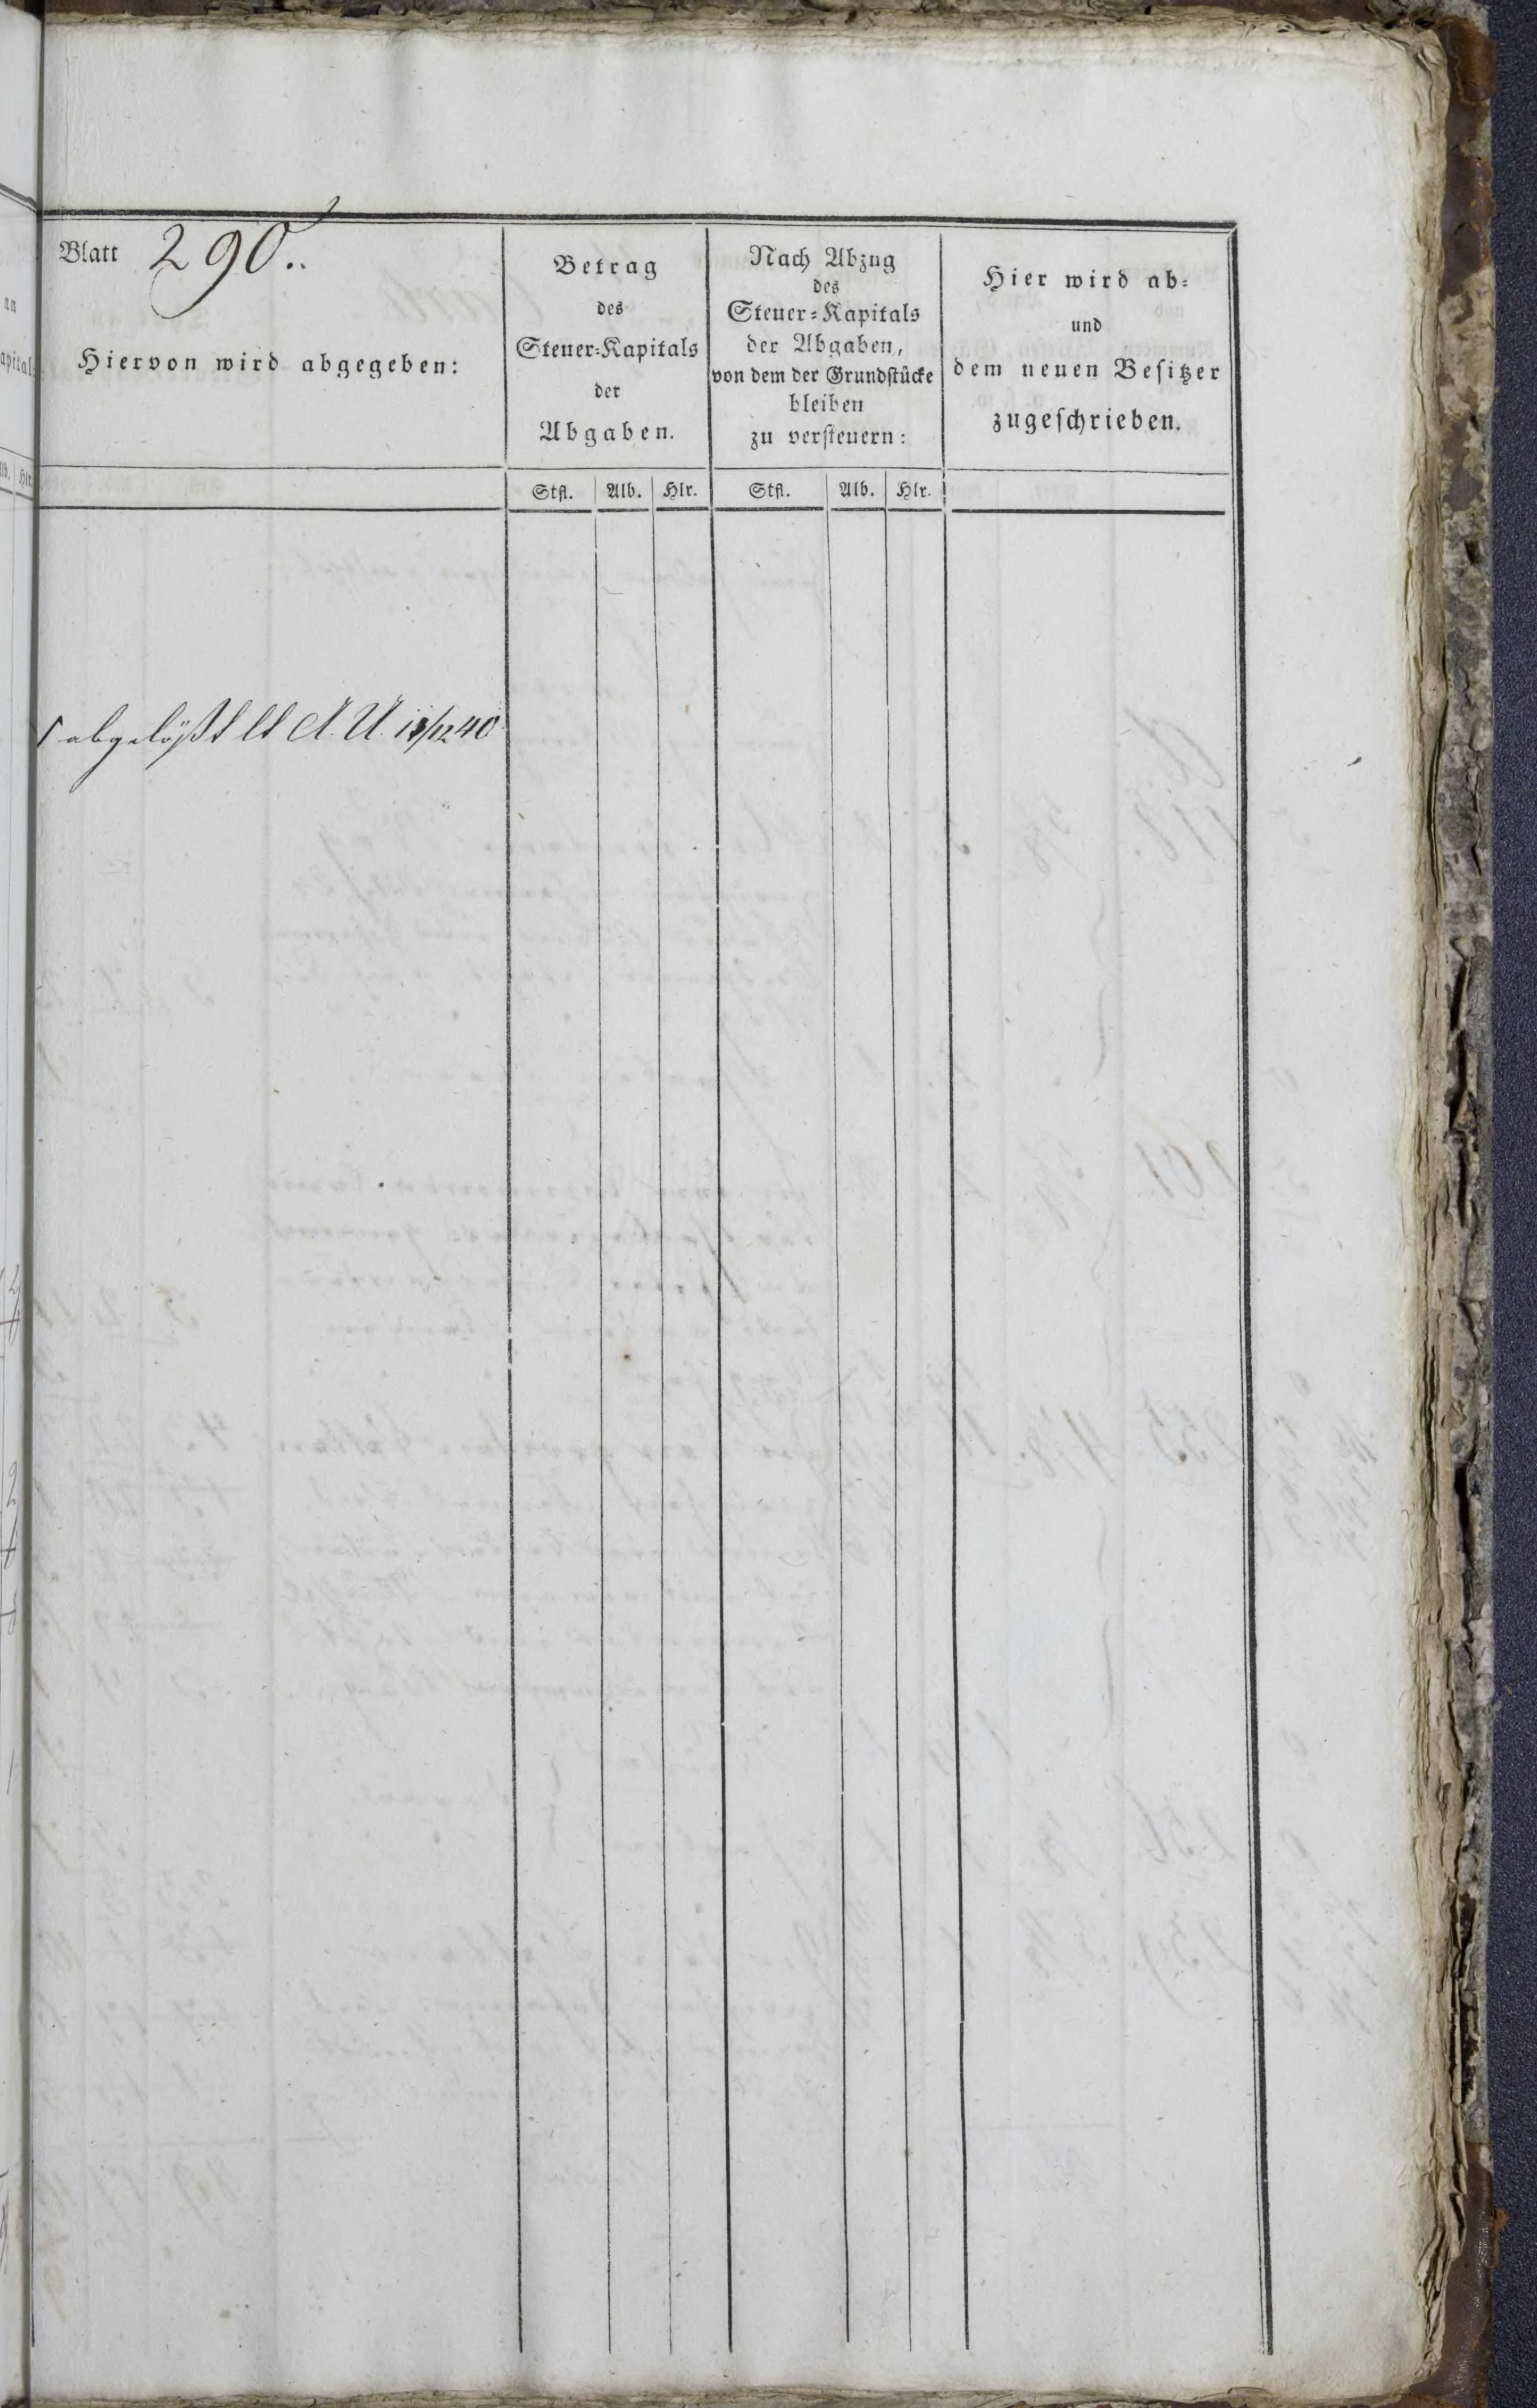 Blatt 290.
Hiervon wird abgegeben:
Betrag
des
Steuer-Kapitals
der
Abgaben.
Nach Abzug
des
Steuer-Kapitals
der Abgaben,
von dem der Grundstücke
bleiben
zu versteuern:
Hier wird ab-
und
dem neuen Besitzer
zugeschrieben.
Stfl. Alb. Hlr. Stfl. Alb. Hlr.
abgelößt lt A. U. 40